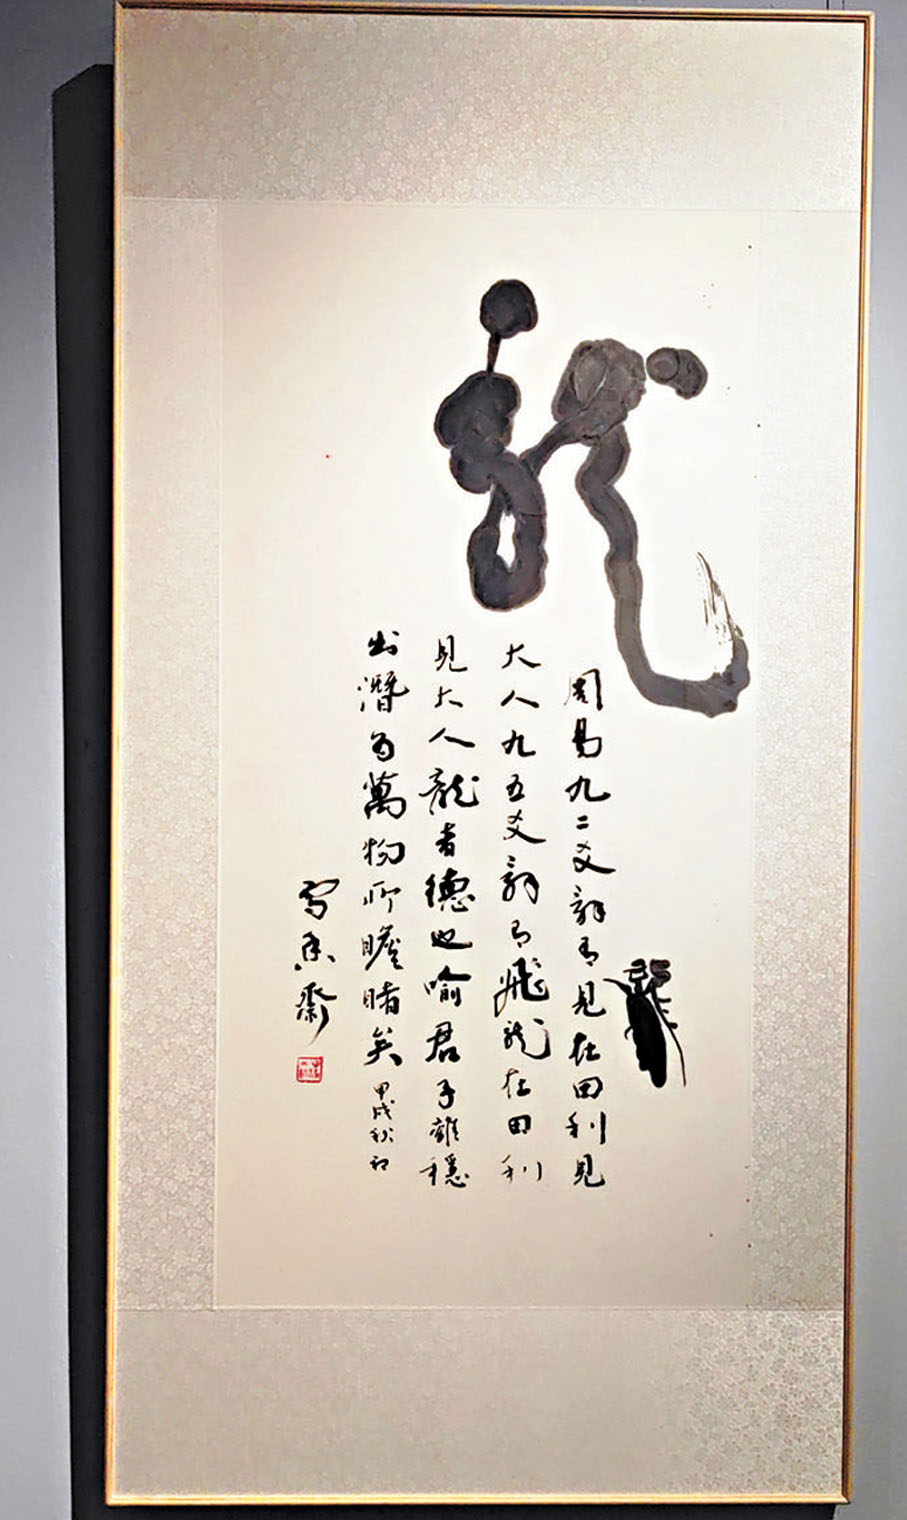 龍
周易九二爻辭有見在田利見
大人九五爻辭有飛龍在田利
見大人龍者德也喻君子離穩
出潛為萬物所瞻睹矣甲戌秋初
齋